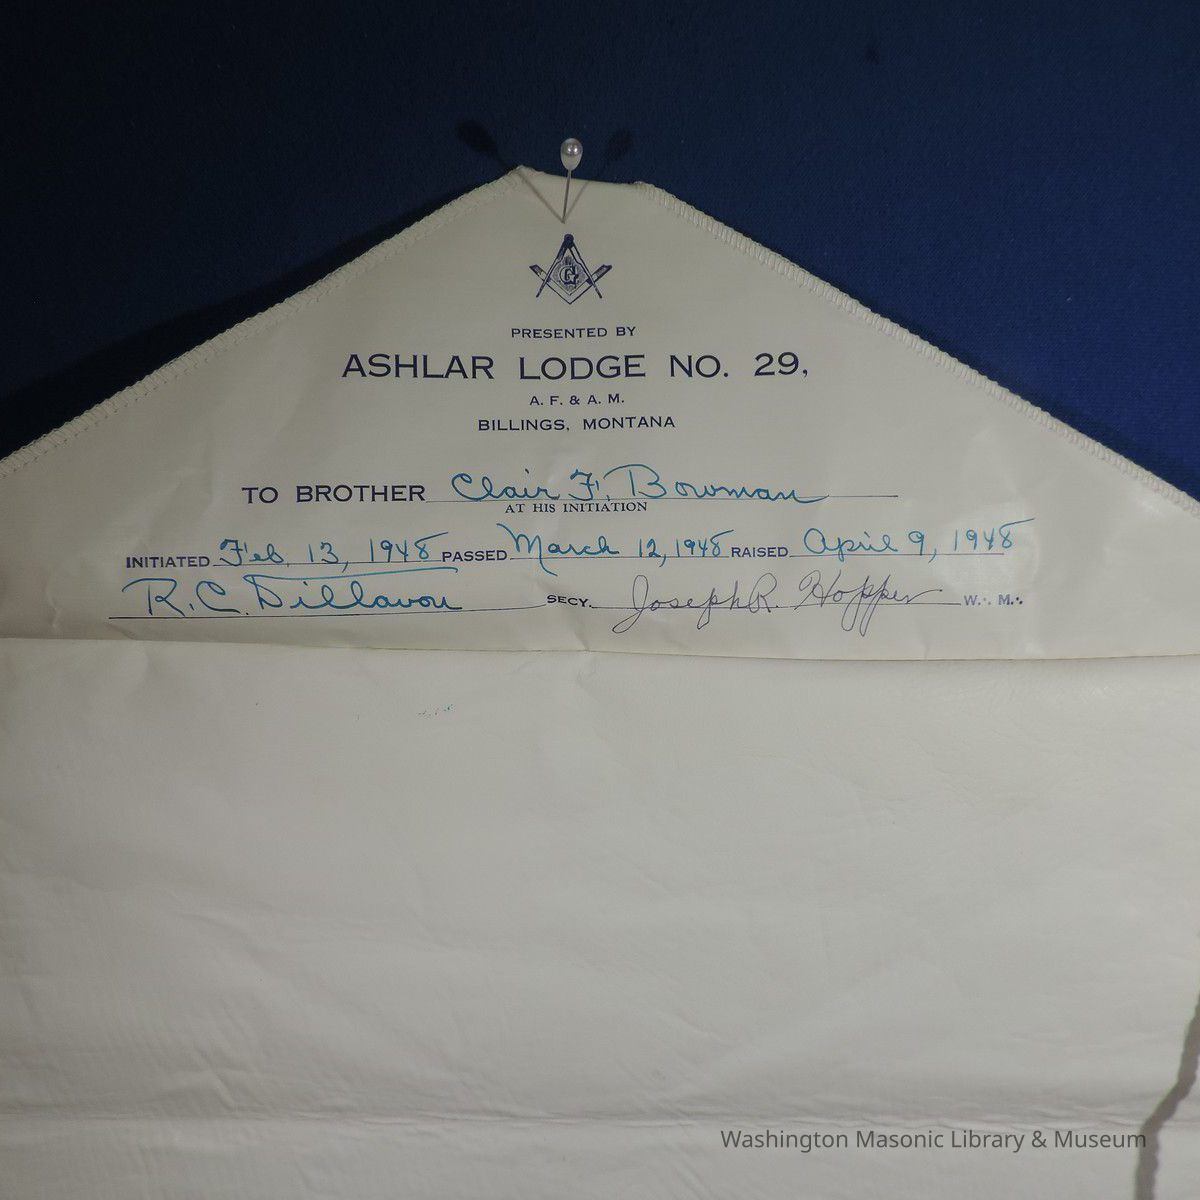 G
PRESENTED BY
ASHLAR LODGE NO. 29,
A. F. & A. M.
BILLINGS, MONTANA
TO BROTHER Clair F. Bowman
AT HIS INITIATION
INITIATED Feb. 13, 1948 PASSED March 12, 1948 RAISED April 9, 1948
R. C. Dillavou SECY. Joseph R. Hopper W∴ M∴
Washington Masonic Library & Museum